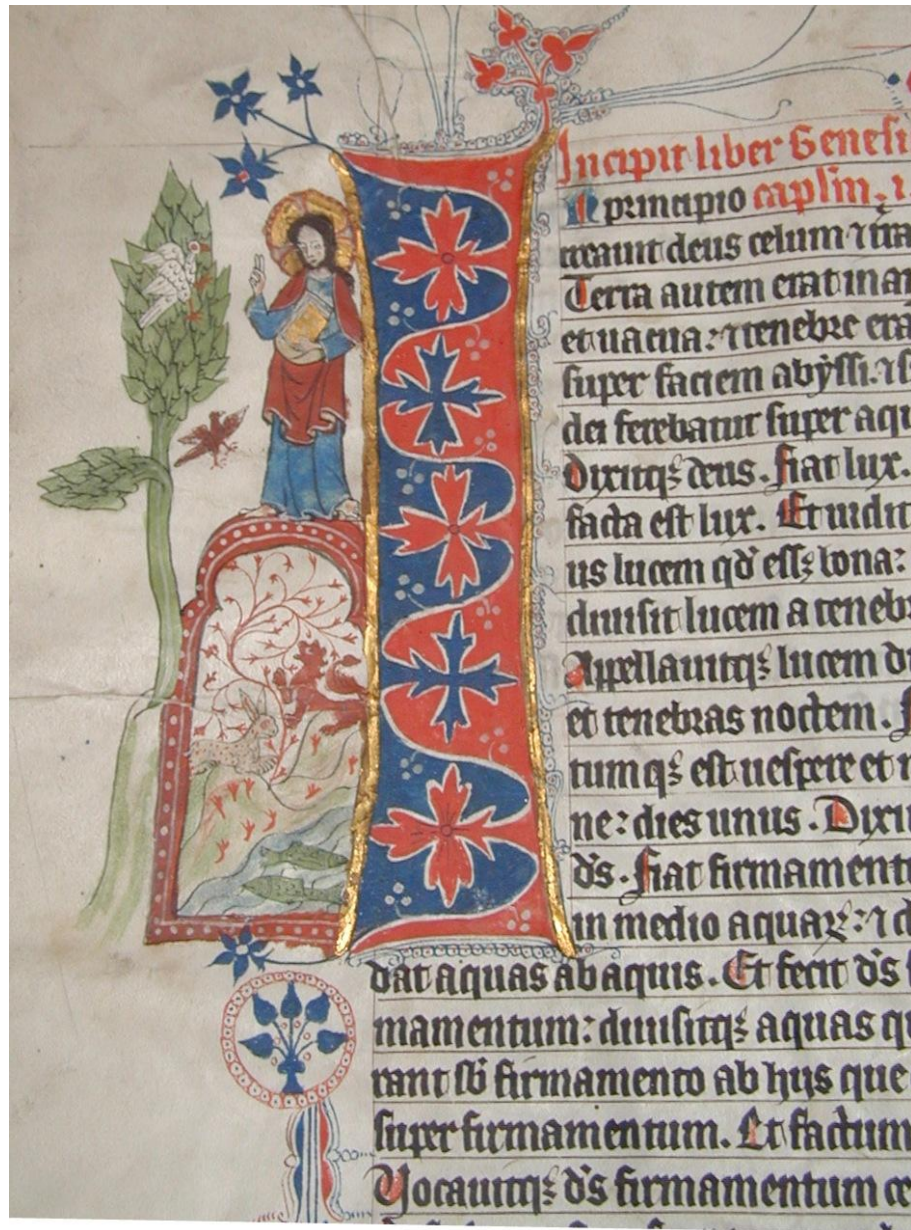 Incipit liber Genesi
N principio caplm. i.
creauit deus celum ⁊ t̄ra
Terra autem erat in an
et uacua: ⁊ tenebre era
super faciem abyssi. ⁊ s
dei ferebatur super aqu
Dixitqꝫ deus. Fiat lux.
facta est lux. Et uidit
us lucem qd̄ essꝫ bona:
diuisit lucem a tenebr
Appellauitqꝫ lucem d
et tenebras noctem. F
tumqꝫ est uespere et m
ne: dies unus. Dixit
d̄s. Fiat firmamentu
in medio aquaꝝ: ⁊ d
dat aquas ab aquis. Et fecit d̄s f
mamentum: diuisitqꝫ aquas qu
rant sb̄ firmamento ab hijs que
super firmamentum. Et factum
Vocauitqꝫ d̄s firmamentum ce